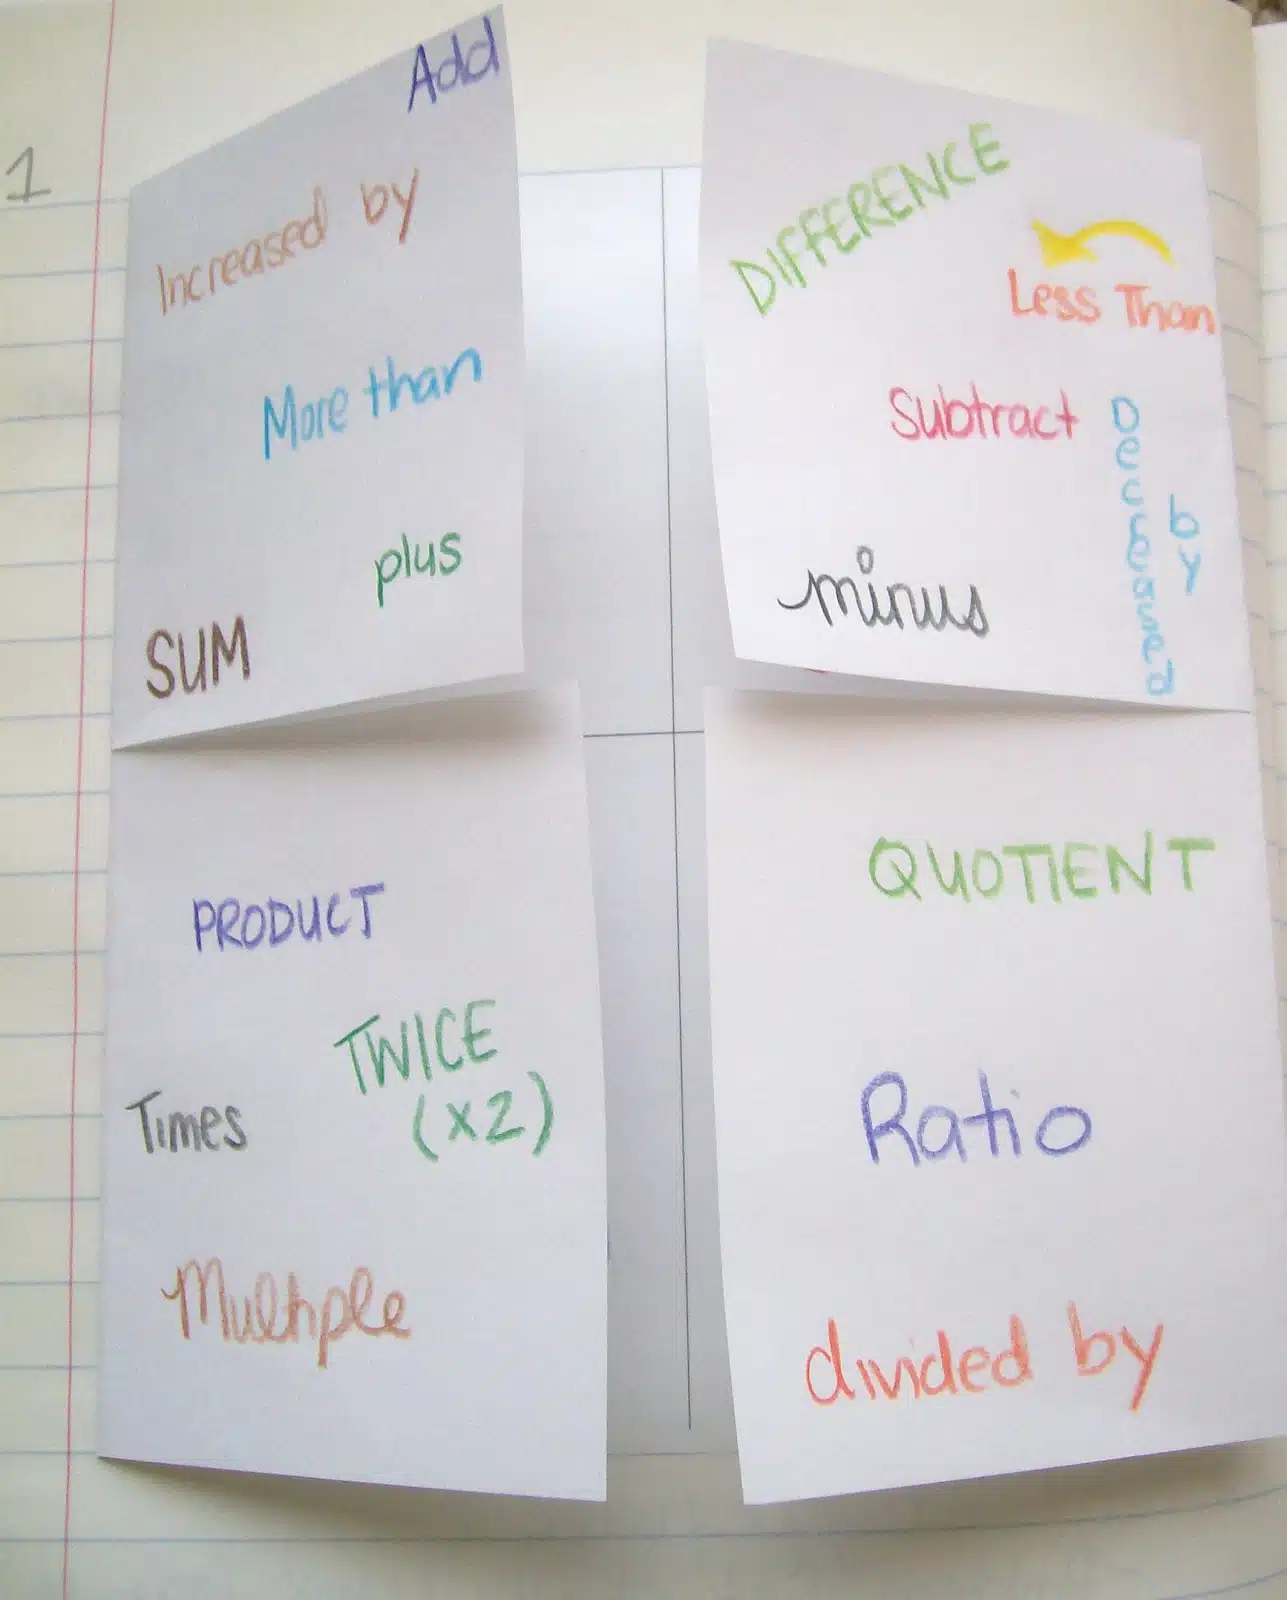 1
Add
Increased by
More than
plus
SUM
DIFFERENCE
Less Than
Subtract
Decreased
by
minus
PRODUCT
TWICE
(x2)
Times
Multiple
QUOTIENT
Ratio
divided by